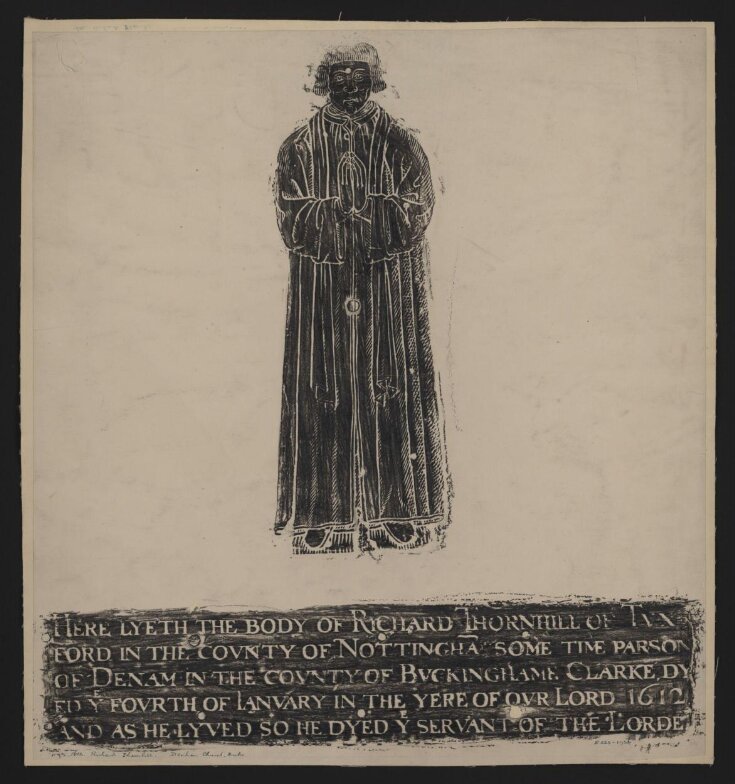 HERE LYETH THE BODY OF RICHARD THORNHILL OF TVX
FORD IN THE COVNTY OF NOTTINGHĀ SOME TIME PARSON
OF DENAM IN THE COVNTY OF BVCKINGHAME CLARKE, DY
ED Y FOVRTH OF IANVARY IN THE YERE OF OVR LORD 1612
AND AS HE LYVED SO HE DYED Y SERVANT OF THE LORDE
Richard Thornhill Denham Church, Bucks